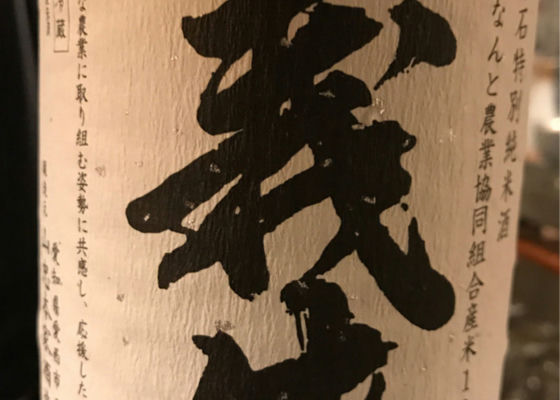 石特別純米酒
なんと農業協同組合産米1
義
な農業に取り組む姿勢に共感し、応援した
冷蔵
愛知県愛西市
山忠本家酒